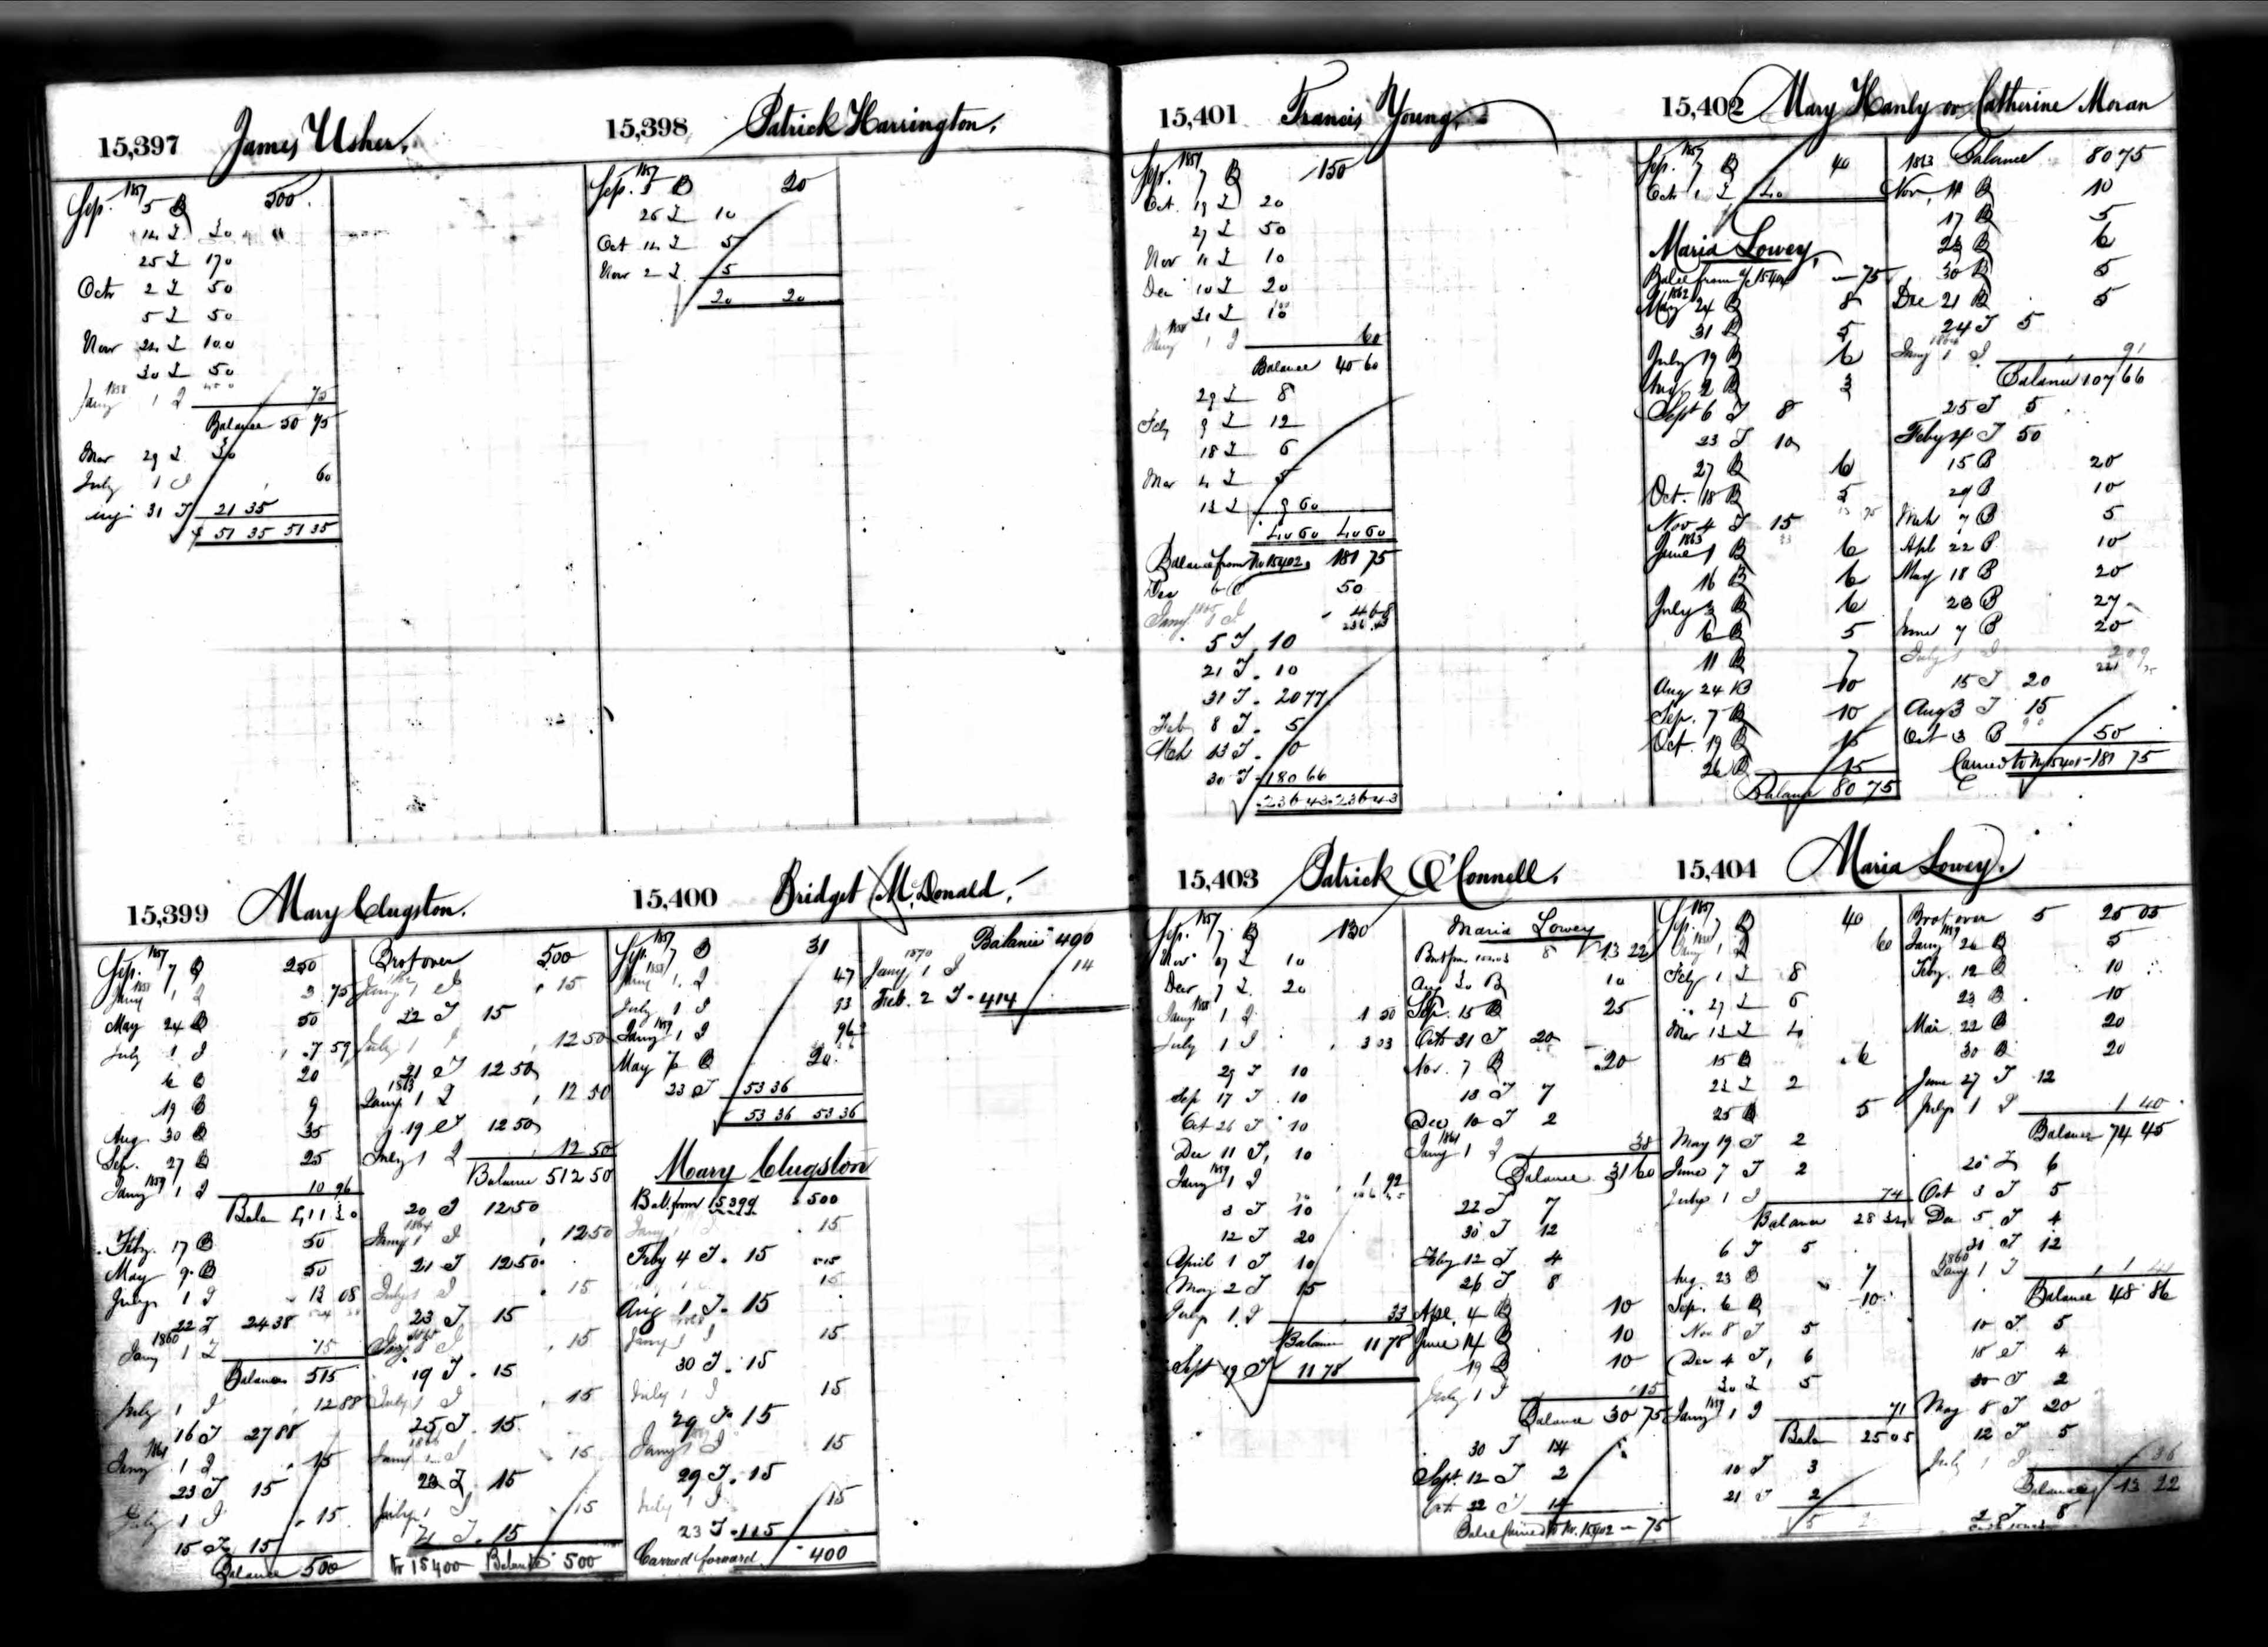 15,397 James Usher.
1857
Sep. 5 B 500
14 I 30
25 I 170
Octr 2 I 50
5 I 50
Nov 24 I 100
30 I 50
1858
Jany 1 I 75
Balance 50 75
Mar 29 I 30
July 1 I 60
Aug 31 I 21 35
$ 51 35 51 35
15,398 Patrick Harrington.
1857
Sep. 5 B 20
26 I 10
Oct 14 I 5
Nov 2 I 5
20 20
15,399 Mary Clugston.
1857
Sep. 7 B 250
1858
Jany 1 I 3 75
May 24 B 50
July 1 I 7 59
6 B 20
19 B 9
Aug. 30 B 35
Sep. 27 B 25
1859
Jany 1 I 10 96
Balan 411 30
Feby. 17 B 50
May 9 B 50
July 1 I 13 08
22 I 24 38
1860
Jany 1 I 15
Balance 515
July 1 I 12 88
16 I 27 88
1861
Jany 1 I 15
23 I 15
July 1 I 15
15 I 15
Balance 500
Brot over 500
1862
Jany 1 I 15
22 I 15
July 1 I 12 50
21 I 12 50
1863
Jany 1 I 12 50
19 I 12 50
July 1 I 12 50
Balance 512 50
20 I 12 50
1864
Jany 1 I 12 50
21 I 12 50
July 1 I 15
23 I 15
1865
Jany 1 I 15
19 I 15
July 1 I 15
25 I 15
1866
Jany 1 I 15
23 I 15
July 1 I 15
21 I 15
to 15400 Balance 500
15,400 Bridget McDonald.
1857
Sep. 7 B 31
1858
Jany 1 I 47
July 1 I 93
1859
Jany 1 I 96
May 7 B 20
23 I 53 36
53 36 53 36
Mary Clugston
Bal. from 15399 500
Jany 1 I 15
Feby 4 I 15
15
Aug 1 I 15
1868
Jany 1 I 15
30 I 15
July 1 I 15
29 I 15
Jany 1 I 15
29 I 15
July 1 I 15
23 I 115
Carried forward 400
Balance 400
1870
Jany 1 I 14
Feb. 2 I 414
15,401 Francis Young.
1857
Sep. 7 B 150
Oct. 19 I 20
27 I 50
Nov 11 I 10
Dec 10 I 20
31 I 10
1858
Jany 1 I 60
Balance 40 60
29 I 8
Feby 9 I 12
18 I 6
Mar 4 I 5
13 I 9 60
40 60 40 60
Balance from No 15402 181 75
Dec 6 B 50
1865
Jany 1 I 4 68
236 43
5 I 10
21 I 10
31 I 20 77
Feb 8 I 5
Mch 13 I 10
30 I 180 66
236 43 236 43
15,402 Mary Hanly or Catherine Moran
1857
Sep. 7 B 40
Octr 1 I 40
Maria Lowey
Balce from 15404 75
1862
May 24 B 8
31 B 5
July 19 B 6
Aug 2 B 3
Sept 6 I 8
23 I 10
27 B 6
Oct. 18 B 5
Nov 4 I 15
1863
June 1 B 6
16 B 6
July 3 B 6
6 B 5
11 B 7
Aug 24 B 10
Sep. 7 B 10
Oct. 19 B 15
26 B 15
Balance 80 75
1863 Balance 80 75
Nov. 11 B 10
17 B 5
23 B 6
30 B 5
Dec 21 B 5
24 I 5
1864
Jany 1 I 91
Balance 107 66
25 I 5
Feby 4 I 50
15 B 20
29 B 10
Mch 7 B 5
Apl 22 B 10
May 18 B 20
28 B 27
June 7 B 20
July 1 I 2 09
15 I 20
Aug 3 I 15
Oct 3 B 50
Carried to No 15401 181 75
15,403 Patrick O'Connell.
1857
Sep. 7 B 130
Nov 27 I 10
Decr 7 I 20
1858
Jany 1 I 1 50
July 1 I 3 03
29 I 10
Sep 17 I 10
Oct 26 I 10
Dec 11 I 10
1859
Jany 1 I 1 92
3 I 10
12 I 20
April 1 I 10
May 2 I 15
July 1 I 33
Balance 11 78
Sept 19 I 11 78
Maria Lowey
8 13 22
Aug 20 B 10
Sep. 15 B 25
Octr 31 I 20
Nov. 7 B 20
18 I 7
Dec 10 I 2
1861
Jany 1 I 38
Balance 31 60
22 I 7
30 I 12
Feby 12 I 4
26 I 8
Apl. 4 B 10
June 14 B 10
19 B 10
July 1 I 15
Balance 30 75
30 I 14
Sept. 12 I 2
Octr 22 I 14
Balce Carried to No. 15402 75
15,404 Maria Lowey.
1857
Sep. 7 B 40
1858
Jany 1 I 60
Feby 1 I 8
27 I 6
Mar 13 I 4
15 B 6
22 I 2
25 B 5
May 19 I 2
June 7 I 2
July 1 I 74
Balance 28 34
6 I 5
Aug. 23 B 7
Sep. 6 B 10
Nov 8 I 5
Dec 4 I 6
30 I 5
1859
Jany 1 I 71
Balan 25 05
10 I 3
21 I 2
5
Brot over 5 25 05
1859
Jany 26 B 5
Feby. 12 B 10
23 B 10
Mar. 22 B 20
30 B 20
June 27 I 12
July 1 I 1 40
Balance 74 45
20 I 6
Oct 3 I 5
Dec 5 I 4
31 I 12
1860
Jany 1 I 1 41
Balance 48 86
10 I 5
18 I 4
30 I 2
May 8 I 20
12 I 5
July 1 I 36
Balance 13 22
2 I 8